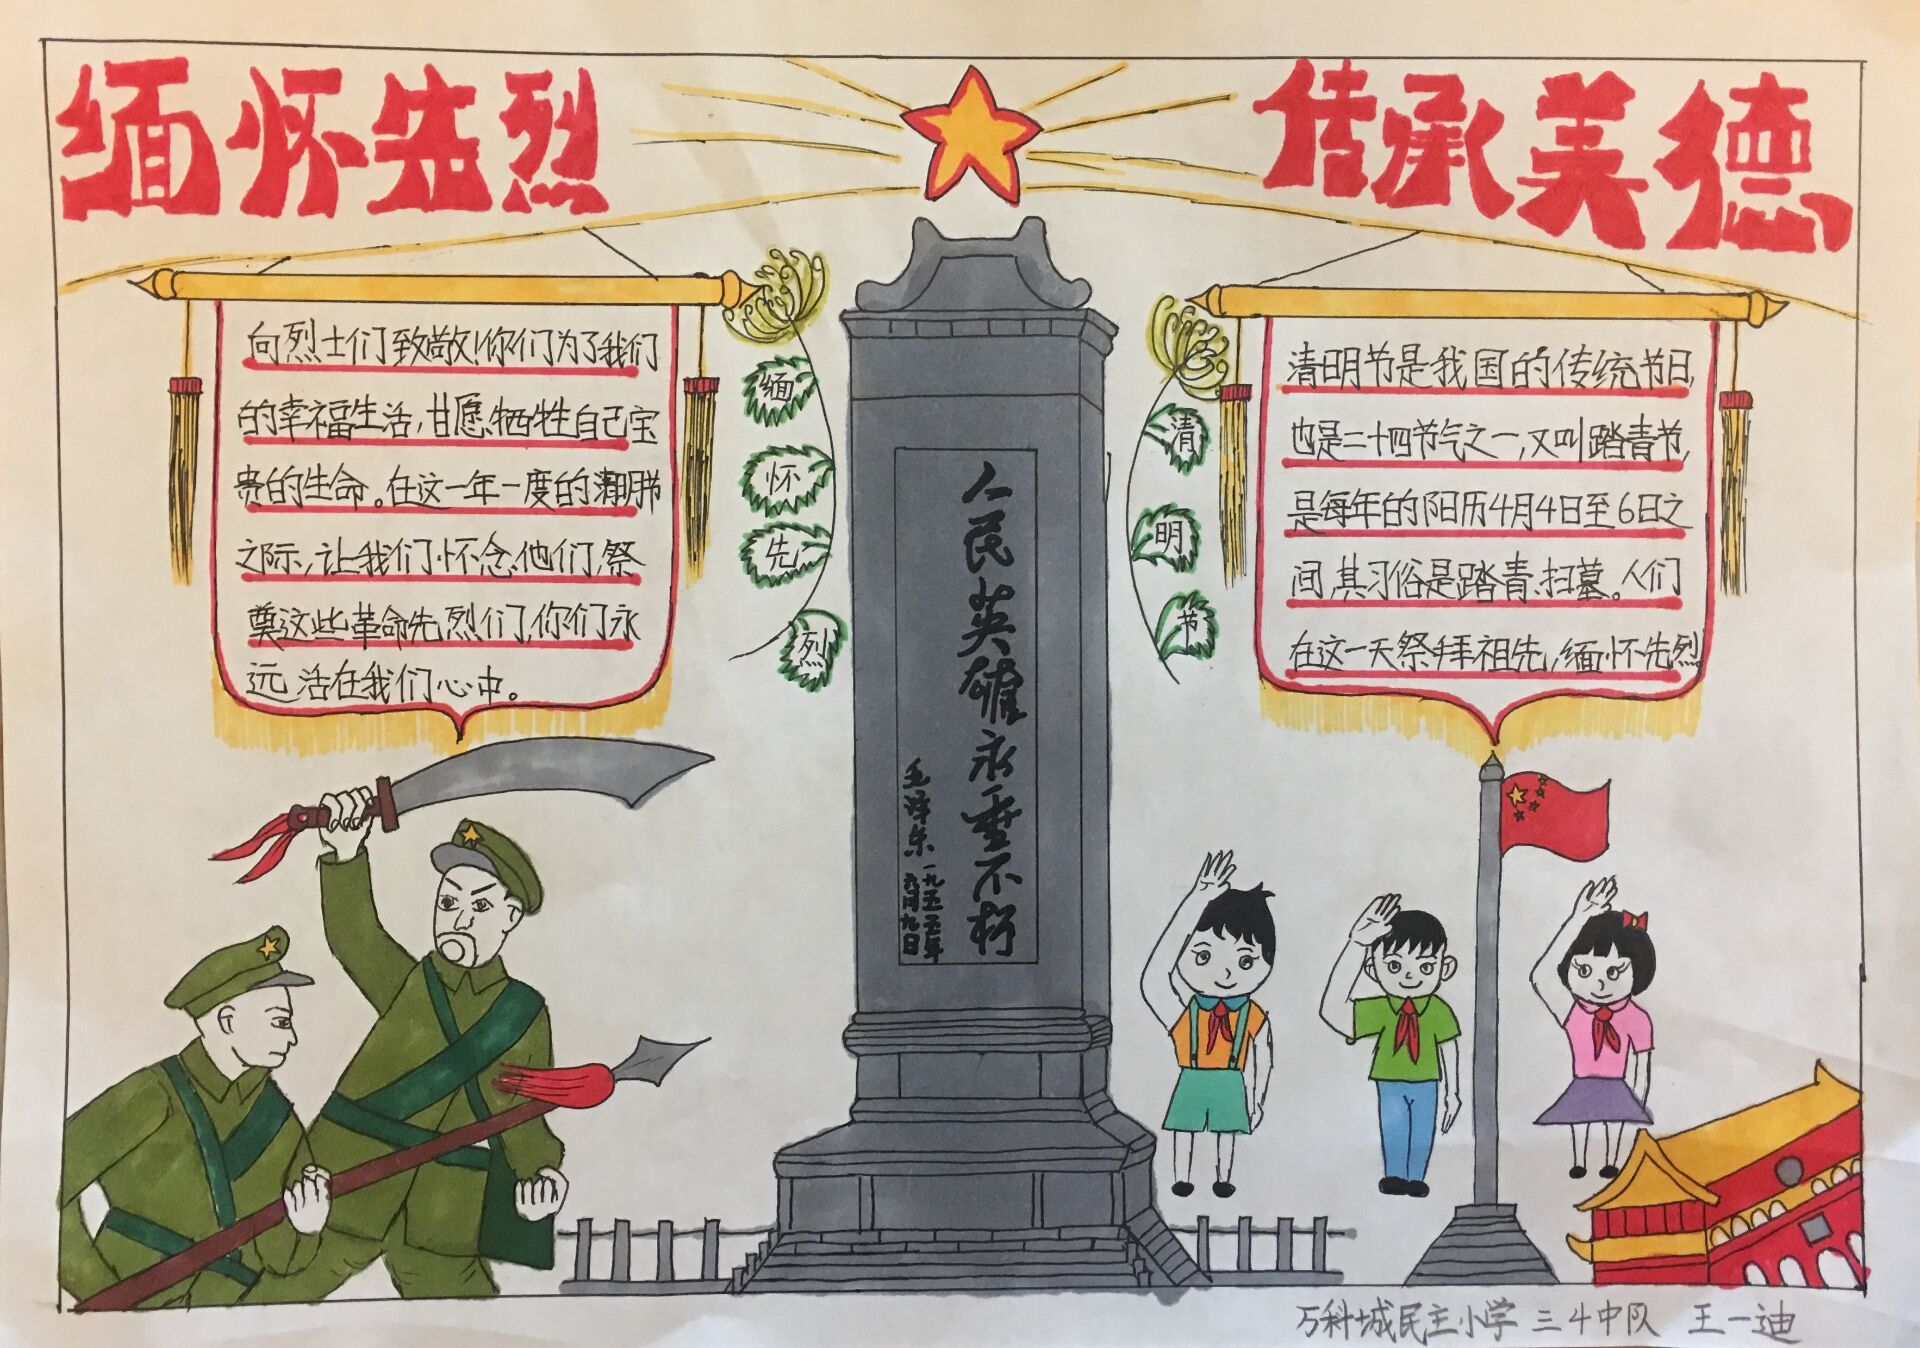 缅怀先烈
传承美德
向烈士们致敬!你们为了我们
的幸福生活,甘愿牺牲自己宝
贵的生命。在这一年一度的清明节
之际,让我们怀念他们,祭
奠这些革命先烈们,你们永
远活在我们心中。
缅
怀
先
烈
人民英雄永垂不朽
毛泽东
一九五五年
六月九日
清
明
节
清明节是我国的传统节日,
也是二十四节气之一,又叫踏青节,
是每年的阳历4月4日至6日之
间,其习俗是踏青、扫墓。人们
在这一天祭拜祖先,缅怀先烈
万科城民主小学 三4中队 王一迪